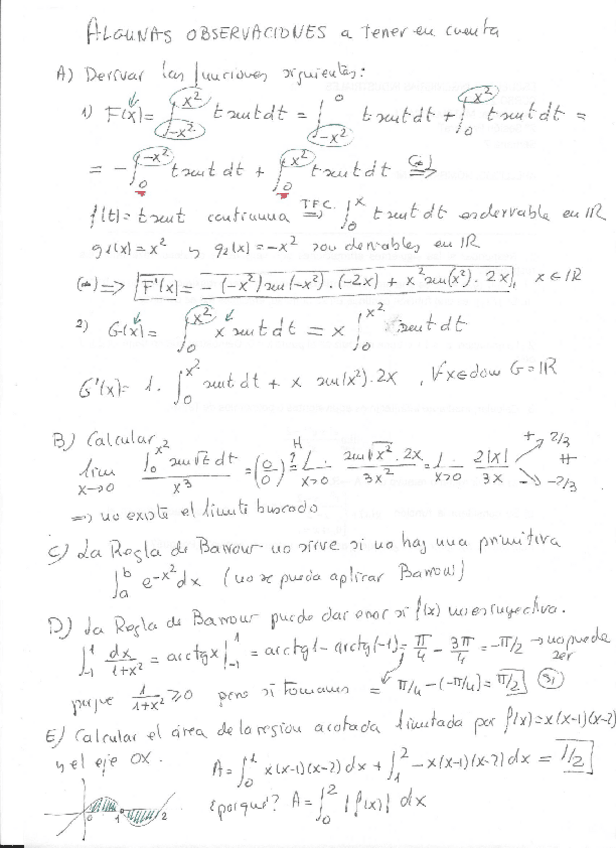 ALGUNAS OBSERVACIONES a tener en cuenta
A) Derivar las funciones siguientes:
1) F(x) = ∫_{-x²}^{x²} t sent dt = ∫_{-x²}^{0} t sent dt + ∫_{0}^{x²} t sent dt =
= - ∫_{0}^{-x²} t sent dt + ∫_{0}^{x²} t sent dt (*) ⇒
f(t) = t sent continua T.F.C. ⇒ ∫_{0}^{x} t sent dt es derivable en ℝ
g₁(x) = x² y g₂(x) = -x² son derivables en ℝ
(*) ⇒ F'(x) = -(-x²) sen(-x²) · (-2x) + x² sen(x²) · 2x, x ∈ ℝ
2) G(x) = ∫_{0}^{x²} x sent dt = x ∫_{0}^{x²} sent dt
G'(x) = 1 · ∫_{0}^{x²} sent dt + x sen(x²) · 2x , ∀x ∈ dom G = ℝ
B) Calcular
lim_{x→0} ∫_{0}^{x²} sen√t dt / x³ = (0/0) ?=^H L_{x→0} sen√x² · 2x / 3x² = L_{x→0} 2|x| / 3x + → 2/3 # - → -2/3
⇒ no existe el límite buscado
C) La Regla de Barrow no sirve si no hay una primitiva
∫_{a}^{b} e^{-x²} dx (no se puede aplicar Barrow!)
D) La Regla de Barrow puede dar error si f(x) no es inyectiva.
∫_{-1}^{1} dx / 1+x² = arctg x |_{-1}^{1} = arctg 1 - arctg(-1) = π/4 - 3π/4 = -π/2 → no puede ser
porque 1 / 1+x² ≥ 0 pero si tomamos = π/4 - (-π/4) = π/2 SI
E) Calcular el área de la region acotada limitada por f(x) = x(x-1)(x-2)
y el eje OX. A = ∫_{0}^{1} x(x-1)(x-2) dx + ∫_{1}^{2} -x(x-1)(x-2) dx = 1/2
¿porqué? A = ∫_{0}^{2} |f(x)| dx
0 1 2